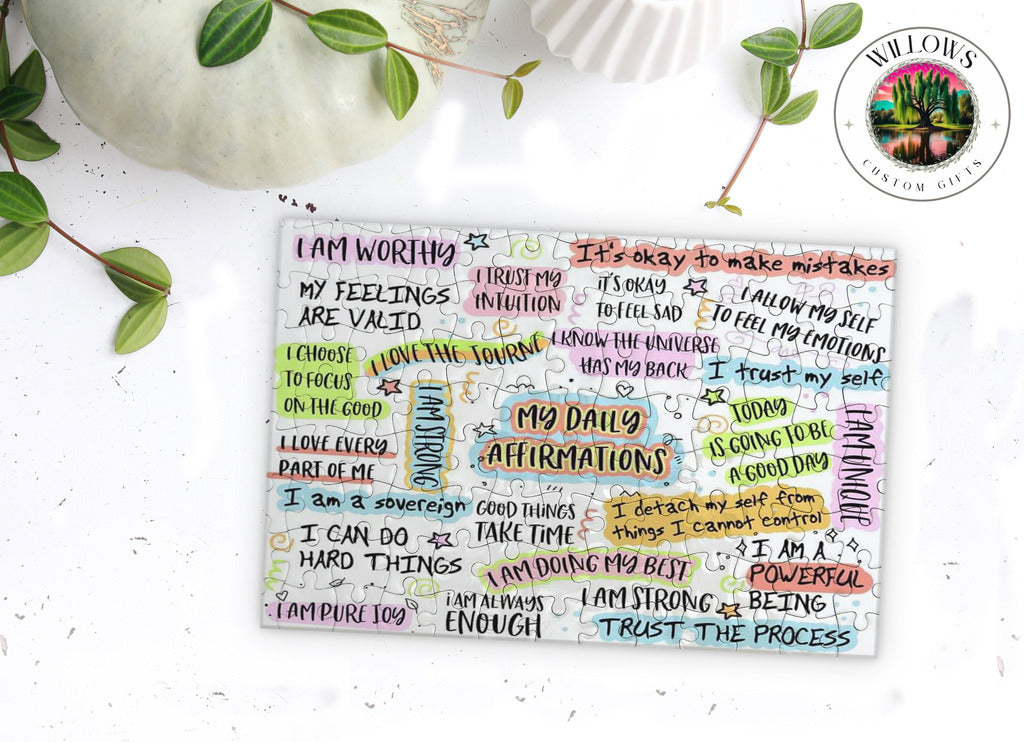 WILLOWS
CUSTOM GIFTS
I AM WORTHY
It's okay to make mistakes
I TRUST MY
INTUITION
IT'S OKAY
TO FEEL SAD
I ALLOW MY SELF
TO FEEL MY EMOTIONS
MY FEELINGS
ARE VALID
I LOVE THE JOURNE
I KNOW THE UNIVERSE
HAS MY BACK
I trust my self
I CHOOSE
TO FOCUS
ON THE GOOD
I AM STRONG
MY DAILY
AFFIRMATIONS
TODAY
IS GOING TO BE
A GOOD DAY
I AM UNIQUE
I LOVE EVERY
PART OF ME
I am a sovereign
GOOD THINGS
TAKE TIME
I detach my self from
things I cannot control
I CAN DO
HARD THINGS
I AM DOING MY BEST
I AM A
POWERFUL
BEING
I AM PURE JOY
I AM ALWAYS
ENOUGH
I AM STRONG
TRUST THE PROCESS